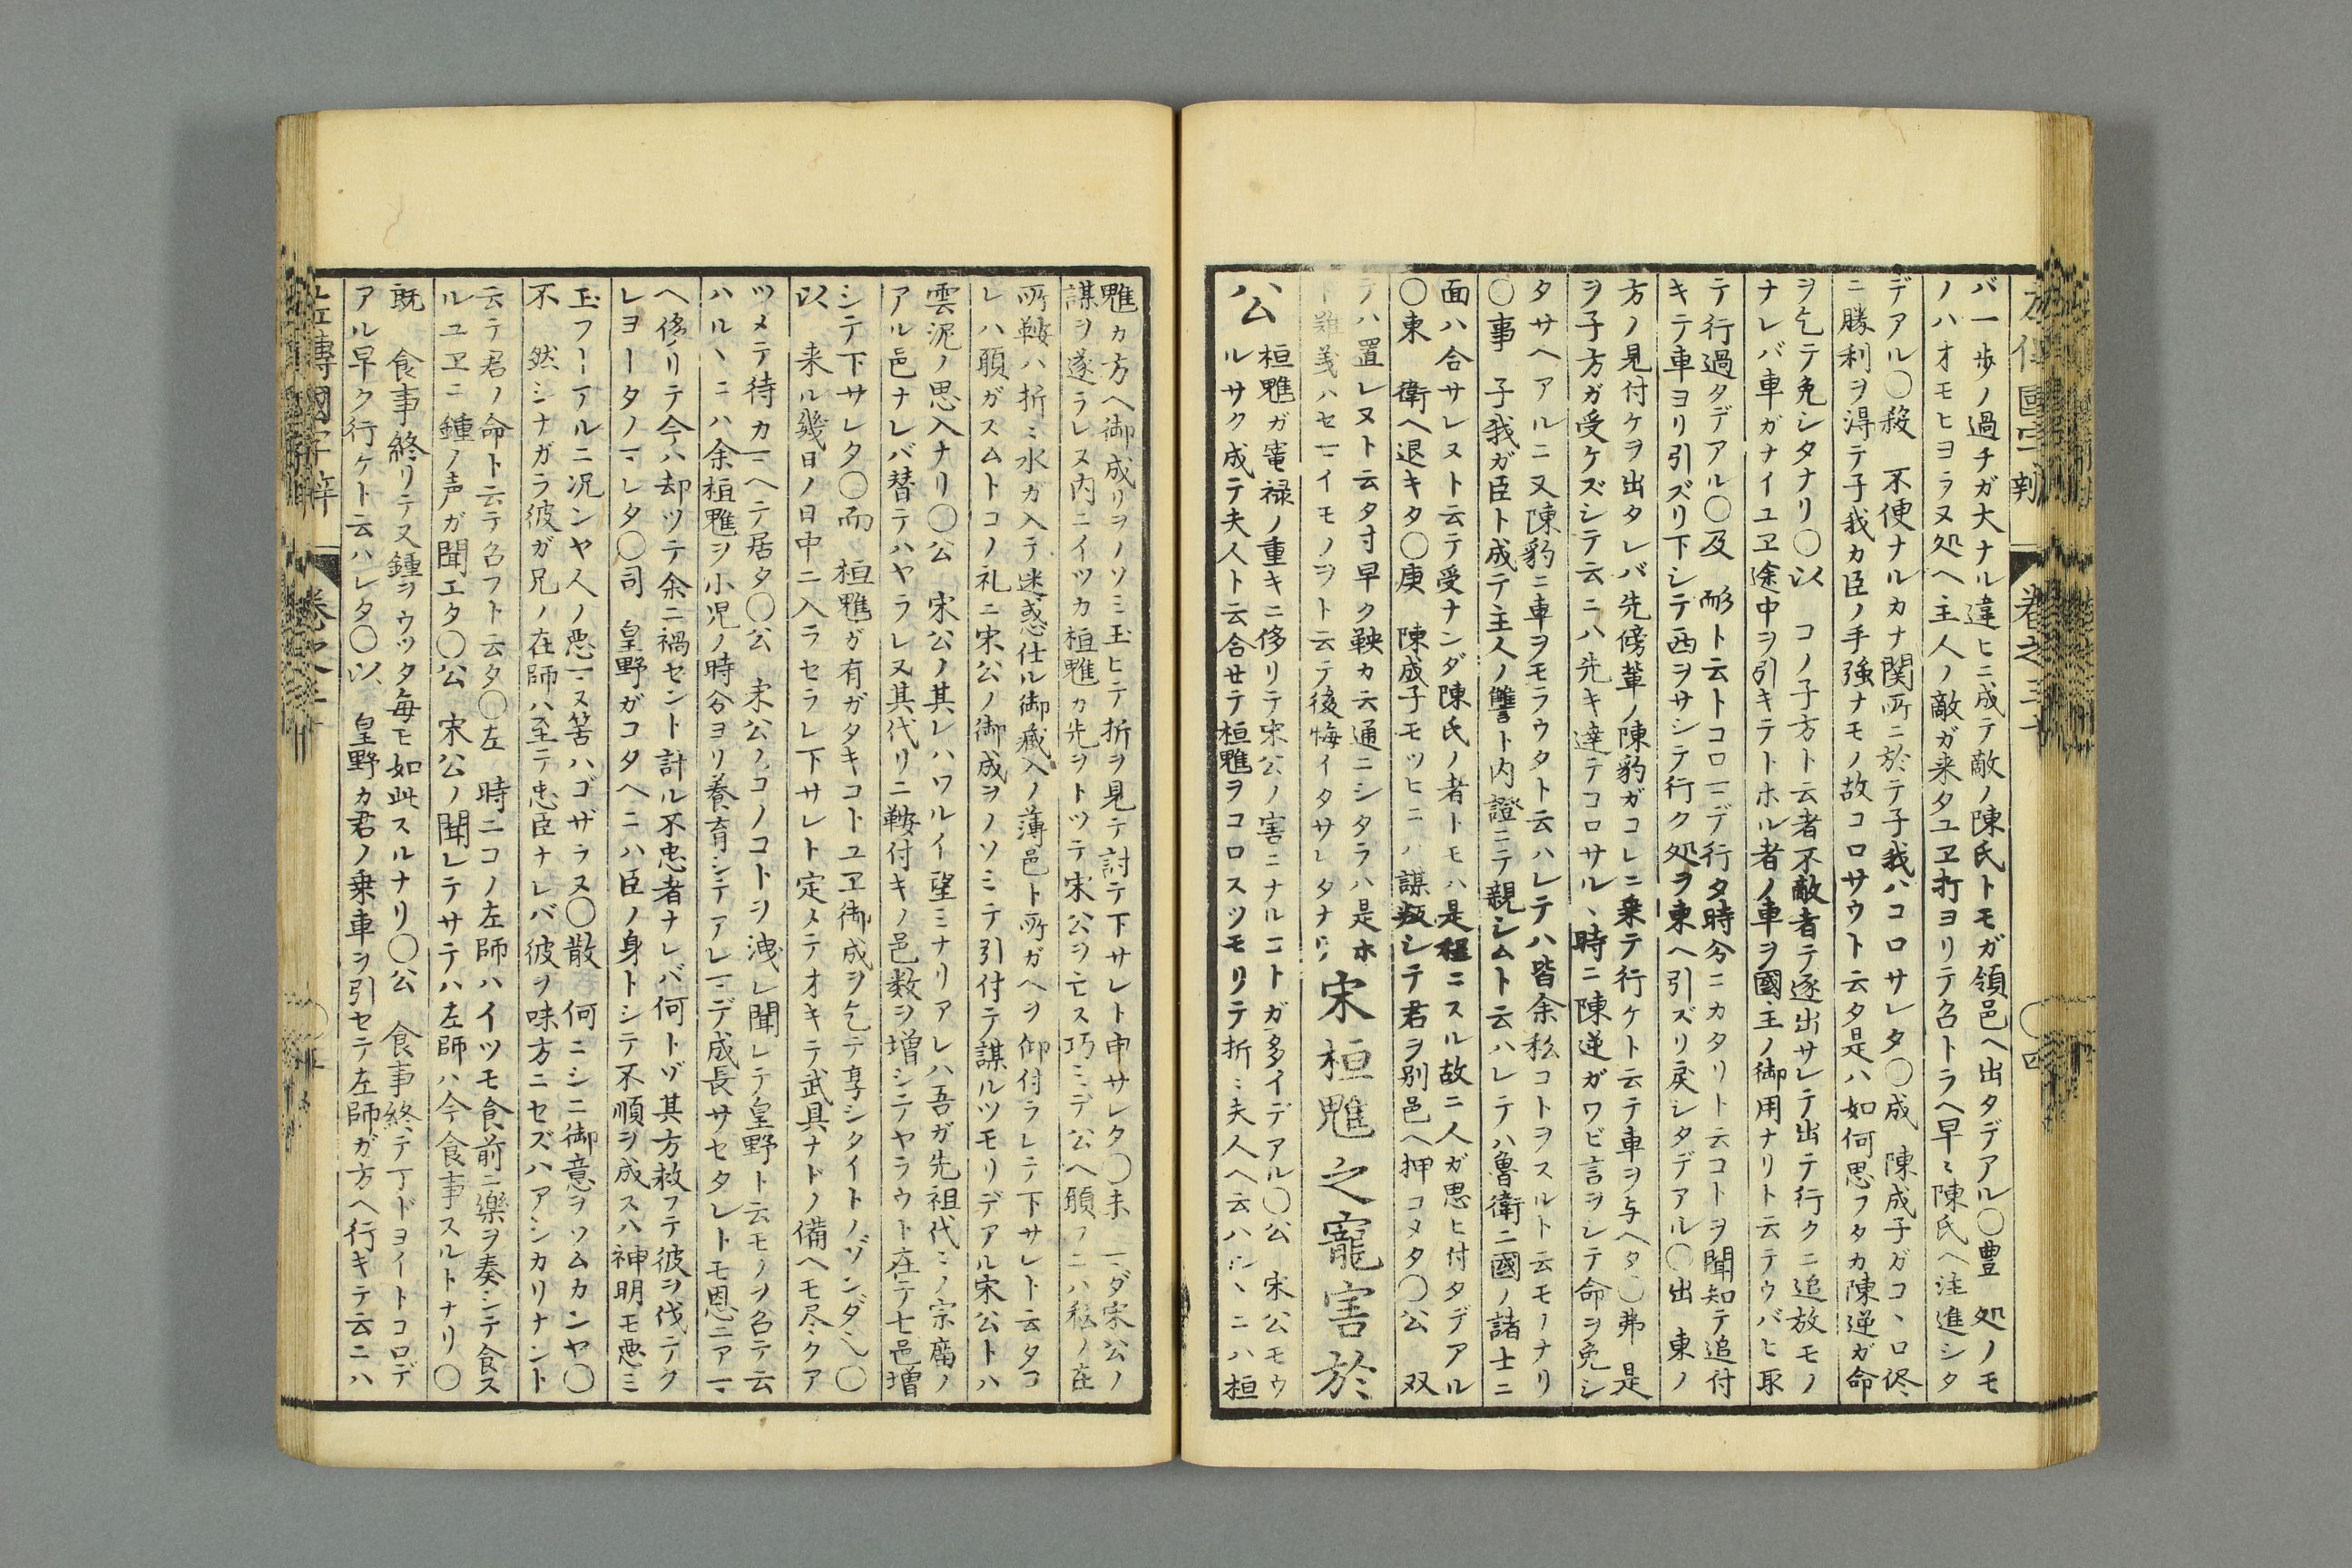 バ一歩ノ過チガ大ナル違ヒニ成テ敵ノ陳氏トモガ領邑ヘ出タデアル〇豊 処ノモ
ノハオモヒヨラヌ処ヘ主人ノ敵ガ来タユヱ打ヨリテ召トラヘ早〻陳氏ヘ注進シタ
デアル〇殺 不便ナルカナ関所ニ於テ子我ハコロサレタ〇成 陳成子ガコヽロ侭
ニ勝利ヲ得テ子我カ臣ノ手強ナモノ故コロサウト云タ是ハ如何思フタカ陳逆ガ命
ヲ乞テ免シタナリ〇以 コノ子方ト云者不敵者テ逐出サレテ出テ行クニ追放モノ
ナレバ車ガナイユヱ途中ヲ引キテトホル者ノ車ヲ國主ノ御用ナリト云テウバヒ取
テ行過タデアル〇及 耏ト云トコロマデ行タ時分ニカタリト云コトヲ聞知テ追付
キテ車ヨリ引ズリ下シテ西ヲサシテ行ク処ヲ東ヘ引ズリ戻シタデアル〇出 東ノ
方ノ見付ケヲ出タレバ先傍輩ノ陳豹ガコレニ乗テ行ケト云テ車ヲ与ヘタ〇弗 是
ヲ子方ガ受ケズシテ云ニハ先キ達テコロサルヽ時ニ陳逆ガワビ言ヲシテ命ヲ免シ
タサヘアルニ又陳豹ニ車ヲモラウタト云ハレテハ皆余私コトヲスルト云モノナリ
〇事 子我ガ臣ト成テ主人ノ讐ト内證ニテ親シムト云ハレテハ魯衛二國ノ諸士ニ
面ハ合サレヌト云テ受ナンダ陳氏ノ者トモハ是程ニスル故ニ人ガ思ヒ付タデアル
〇東 衛ヘ退キタ〇庚 陳成子モツヒニハ謀叛シテ君ヲ別邑ヘ押コメタ〇公 双
テハ置レヌト云タ寸早ク鞅カ云通ニシタラハ是ホ
ト難義ハセマイモノヲト云テ後悔イタサレタナリ
宋桓魋之寵害於
公
桓魋ガ寵禄ノ重キニ侈リテ宋公ノ害ニナルコトガ多イデアル〇公 宋公モウ
ルサク成テ夫人ト云合セテ桓魋ヲコロスツモリテ折〻夫人ヘ云ハルヽニハ桓
魋カ方ヘ御成リヲノソミ玉ヒテ折ヲ見テ討テ下サレト申サレタ〇未 マダ宋公ノ
謀ヲ遂ラレヌ内ニイツカ桓魋カ先ヲトツテ宋公ヲ亡ス巧ミデ公ヘ願フニハ私ノ在
所鞍ハ折〻水ガ入テ迷惑仕ル御蔵入ノ薄邑ト所ガヘヲ仰付ラレテ下サレト云タコ
レハ願ガスムトコノ礼ニ宋公ノ御成ヲノソミテ引付テ謀ルツモリデアル宋公トハ
雲泥ノ思入ナリ〇公 宋公ノ其レハワルイ望ミナリアレハ吾ガ先祖代〻ノ宗廟ノ
アル邑ナレバ替テハヤラレヌ其代リニ鞍付キノ邑数ヲ増シテヤラウト在テ七邑増
シテ下サレタ〇而 桓魋ガ有ガタキコトユヱ御成ヲ乞テ享シタイトノゾンダ〇
以 来ル幾日ノ日中ニ入ラセラレ下サレト定メテオキテ武具ナドノ備ヘモ尽〻クア
ツメテ待カマヘテ居タ〇公 宋公ノコノコトヲ洩レ聞レテ皇野ト云モノヲ召テ云
ハルヽニハ余桓魋ヲ小児ノ時分ヨリ養育シテアレマデ成長サセタレトモ恩ニアマ
ヘ侈リテ今ハ却ツテ余ニ禍セント計ル不忠者ナレバ何トゾ其方救フテ彼ヲ伐テク
レヨータノマレタ〇司 皇野ガコタヘニハ臣ノ身トシテ不順ヲ成スハ神明モ悪ミ
玉フーアルニ况ンヤ人ノ悪マヌ筈ハゴザラヌ〇散 何ニシニ御意ヲソムカンヤ〇
不 然シナガラ彼ガ兄ノ在師ハ至テ忠臣ナレバ彼ヲ味方ニセズハアシカリナント
云テ君ノ命ト云テ召フト云タ〇左 時ニコノ左師ハイツモ食前ニ楽ヲ奏シテ食ス
ルユヱニ鍾ノ声ガ聞エタ〇公 宋公ノ聞レテサテハ左師ハ今食事スルトナリ〇
既 食事終リテ又鍾ヲウツタ毎モ如此スルナリ〇公 食事終テ丁ドヨイトコロデ
アル早ク行ケト云ハレタ〇以 皇野カ君ノ乗車ヲ引セテ左師ガ方ヘ行キテ云ニハ
左傳國字辨 巻之三十